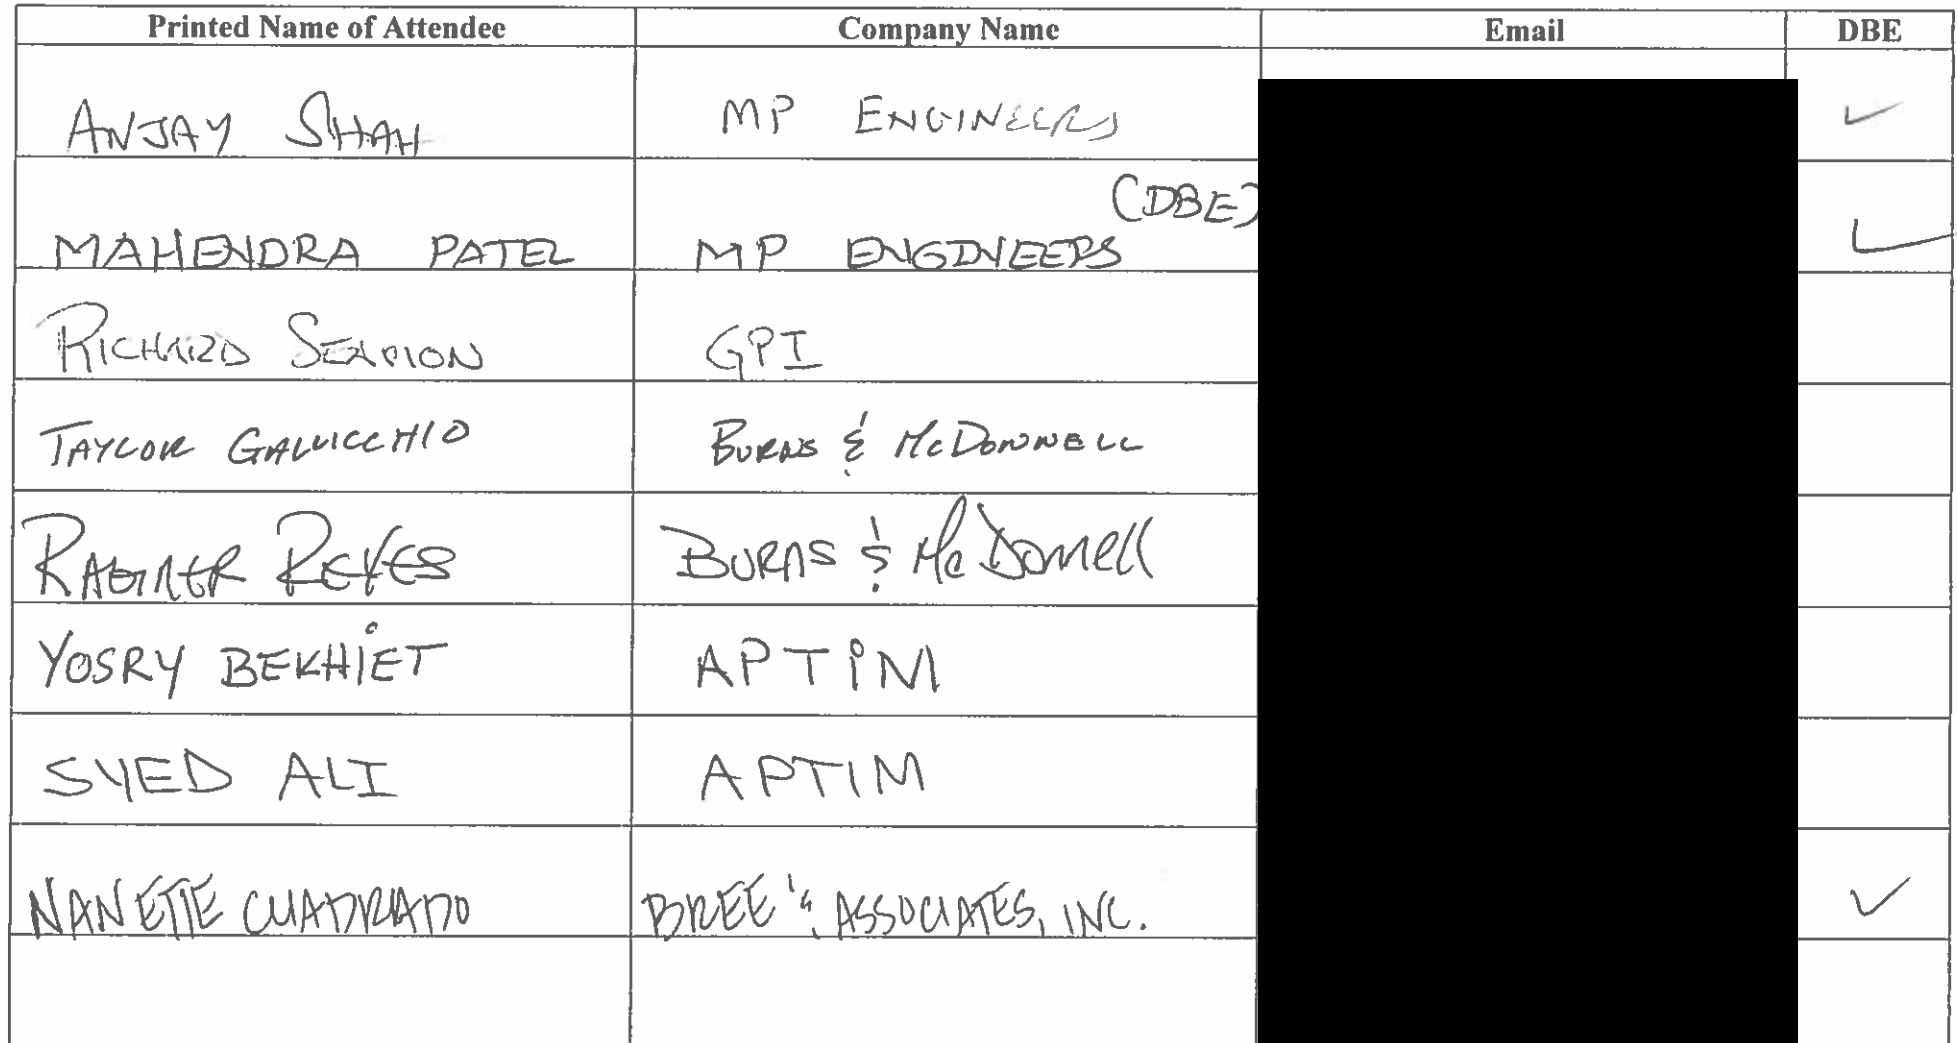 Printed Name of Attendee Company Name Email DBE
ANJAY SHAH MP ENGINEERS
(DBE)
MAHENDRA PATEL MP ENGINEERS
RICHARD GPI
TAYLOR GALLICCHIO BURNS & McDONNELL
REYES BURNS & McDonnell
YOSRY BEKHIET APTIM
SYED ALI APTIM
NANETTE CUADRADO BREE & ASSOCIATES, INC.